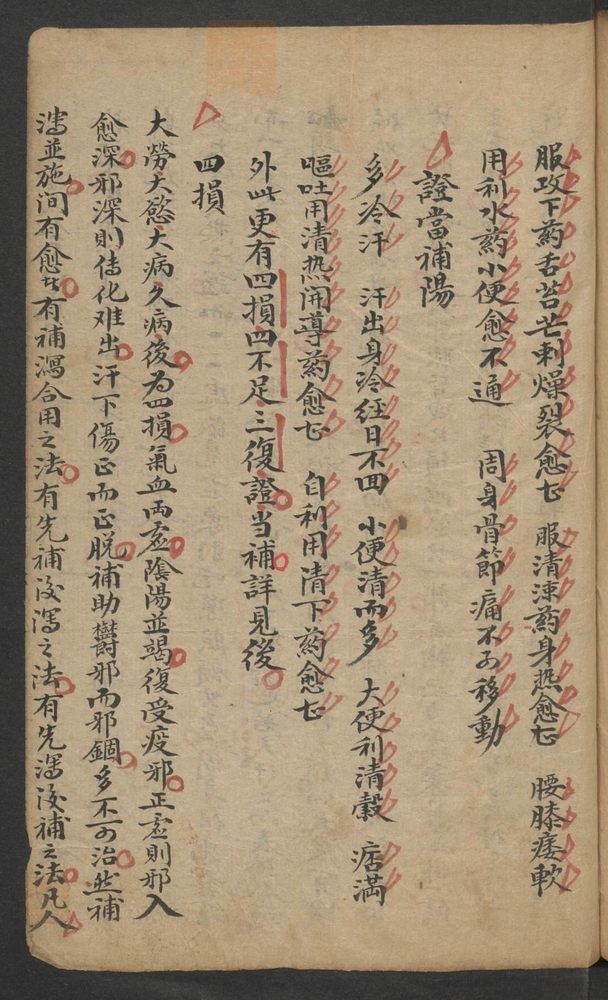 服攻下药舌苔芒刺燥裂愈甚 服清凍药身热愈甚 腰膝痿軟
用利水药小便愈不通 周身骨節痛不可移動
證當補陽
多冷汗 汗出身冷经日不回 小便清而多 大便利清穀 痞满
嘔吐用清热開導药愈甚 自利用清下药愈甚
外此更有四損四不足三復證当補詳見後
四損
大勞大慾大病久病後为四損氣血両虚隂陽並竭復受疫邪正虚則邪入
愈深邪深則传化难出汗下傷正而正脱補助欝邪而邪錮多不可治然補
瀉並施间有愈者有補瀉合用之法有先補後瀉之法有先瀉後補之法凡人